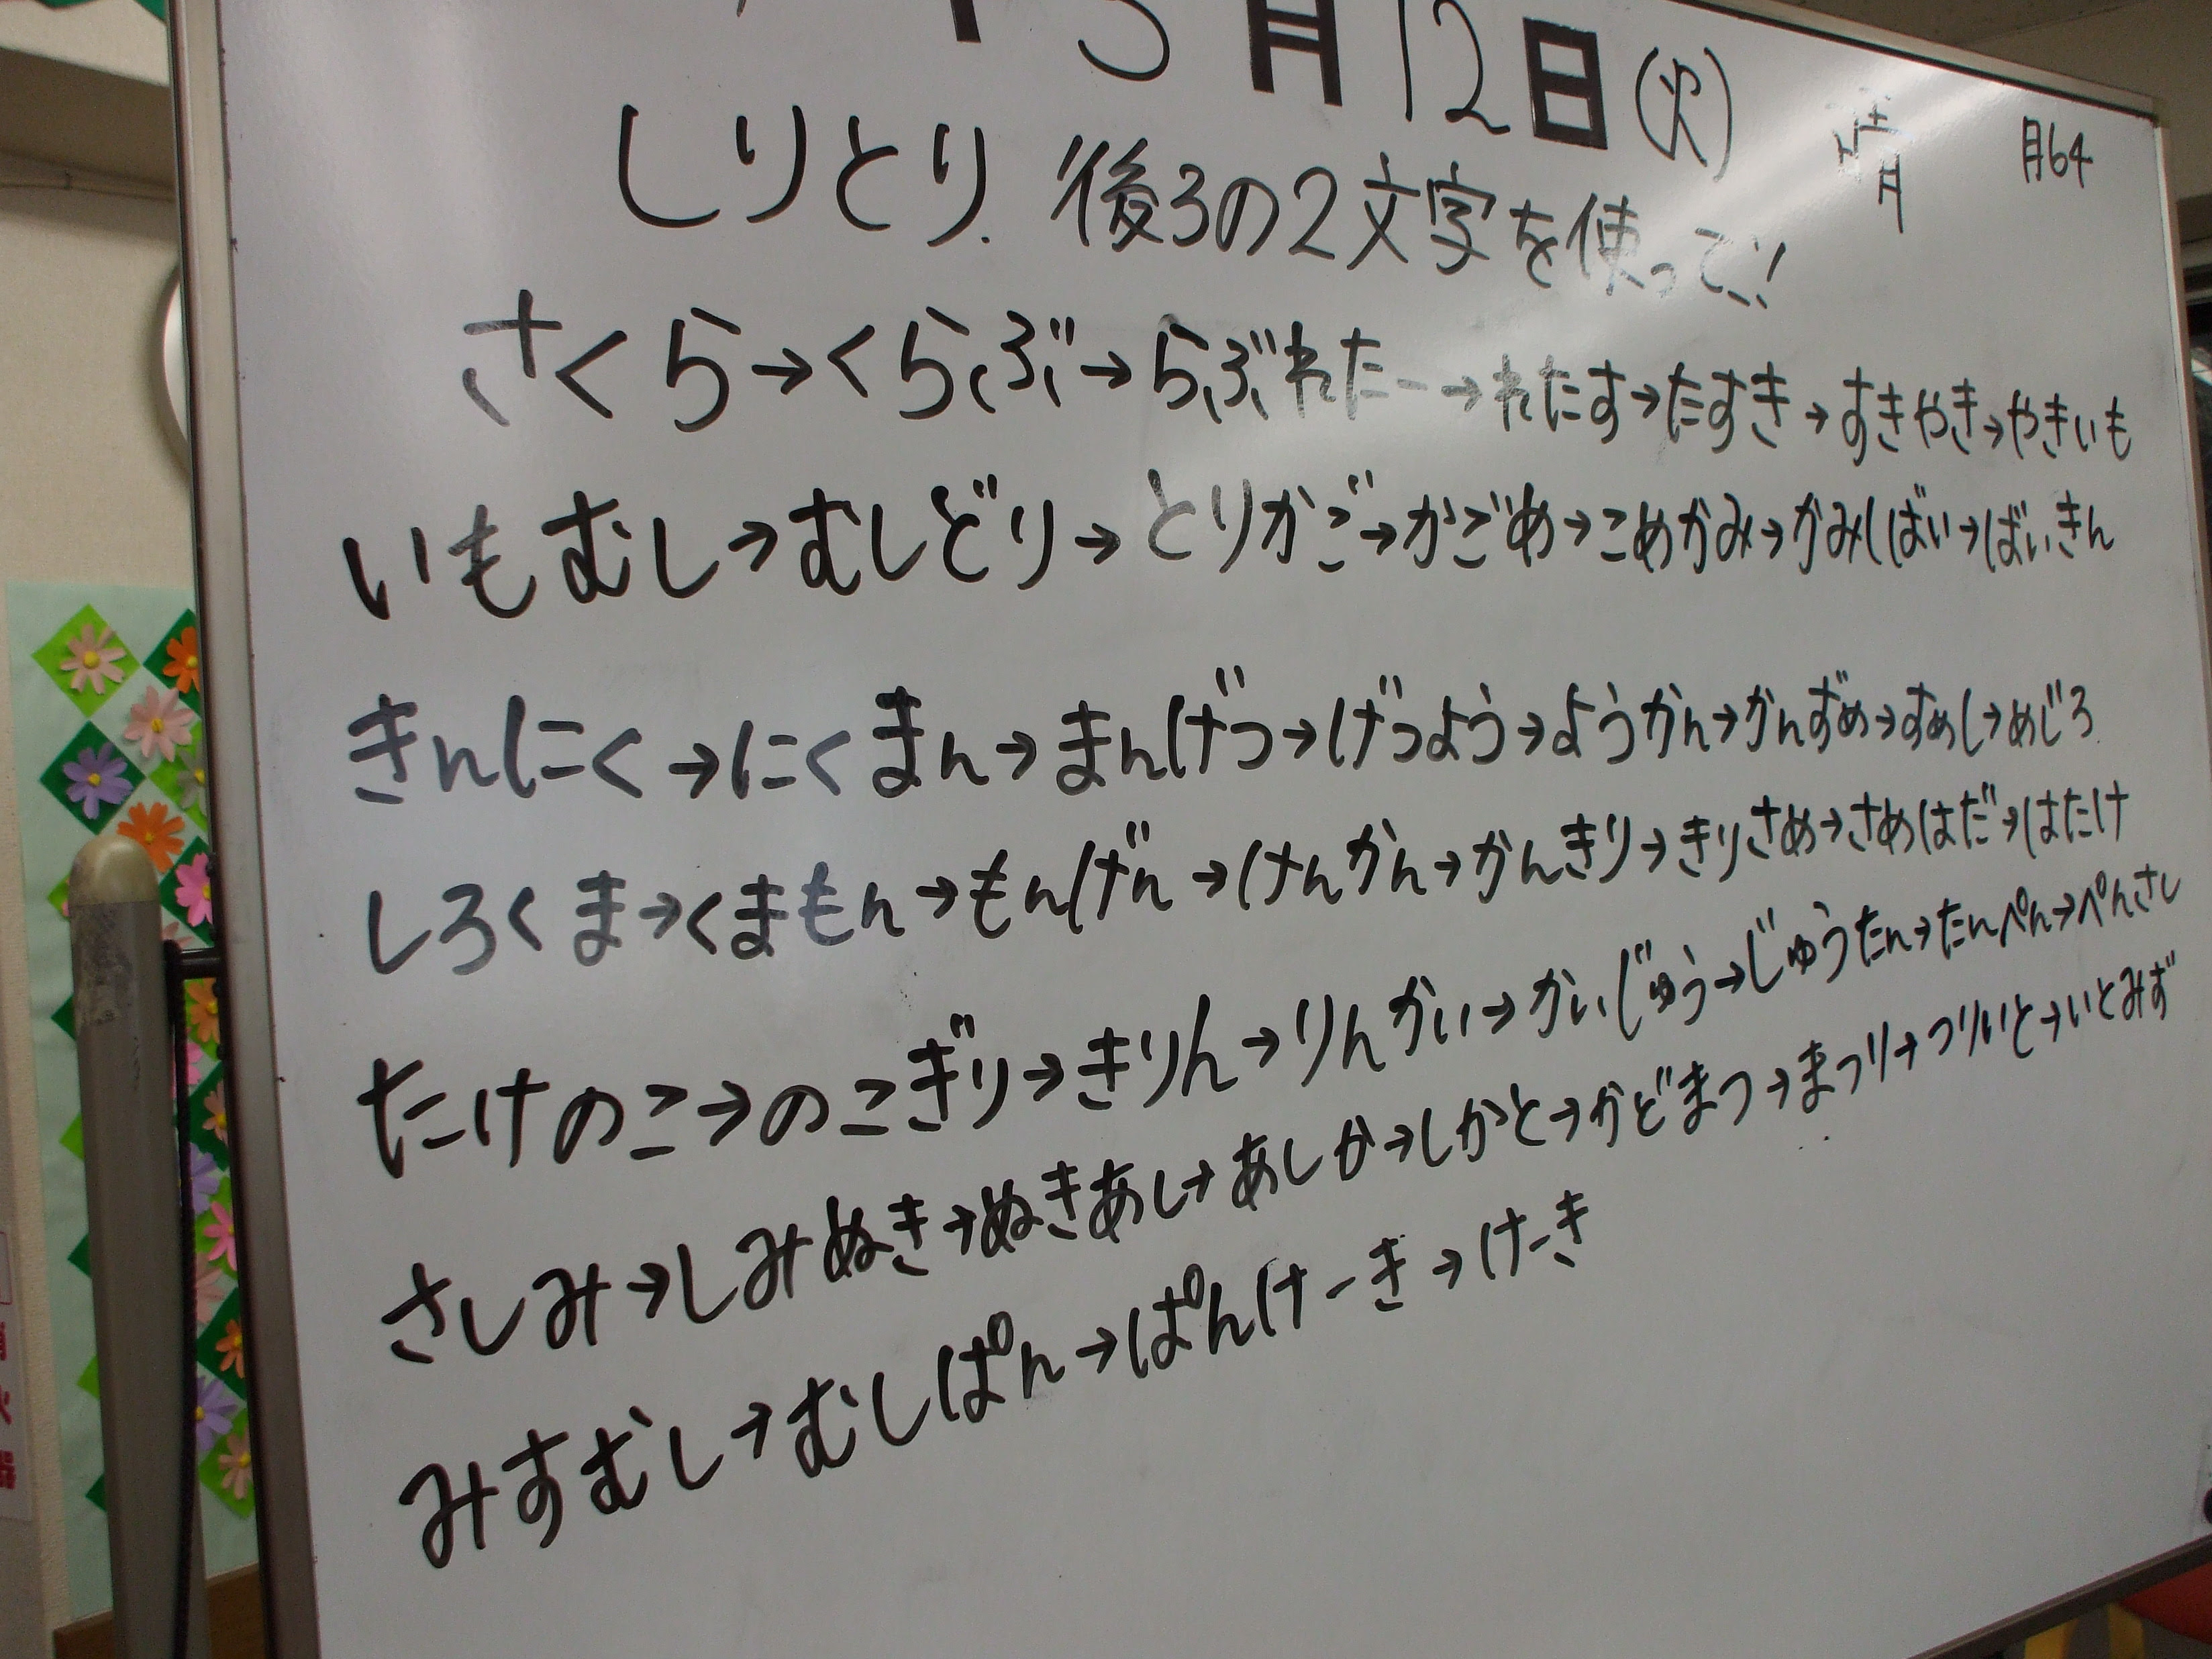 月12日(火)
晴
月64
しりとり. 後ろの2文字を使って!!
さくら→くらぶ→らぶれたー→れたす→たすき→すきやき→やきいも
いもむし→むしどり→とりかご→かごめ→こめかみ→かみしばい→ばいきん
きんにく→にくまん→まんげつ→げつよう→ようかん→かんずめ→すめし→めじろ
しろくま→くまもん→もんげん→けんかん→かんきり→きりさめ→さめはだ→はたけ
たけのこ→のこぎり→きりん→りんかい→かいじゅう→じゅうたん→たんぺん→ぺんさし
さしみ→しみぬき→ぬきあし→あしか→しかと→かどまつ→まつり→つりいと→いとみず
みすむし→むしぱん→ぱんけーき→けーき